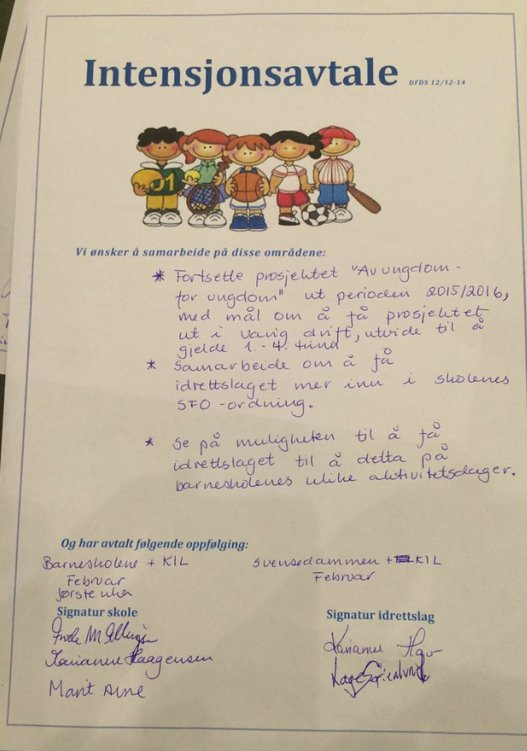 Intensjonsavtale DFDS 12/12-14
01
Vi ønsker å samarbeide på disse områdene:
* Fortsette prosjektet "Av ungdom -
for ungdom" ut perioden 2015/2016,
med mål om å få prosjektet
ut i varig drift, utvide til å
gjelde 1. - 4. trinn
* Samarbeide om å få
idrettslaget mer inn i skolenes
SFO-ordning.
* Se på muligheten til å få
idrettslaget til å delta på
barneskolenes ulike aktivitetsdager.
Og har avtalt følgende oppfølging:
Barneskolene + KIL Svensedammen + KIL
Februar Februar
første uka
Signatur skole Signatur idrettslag
Marianne Haagensen
Marit